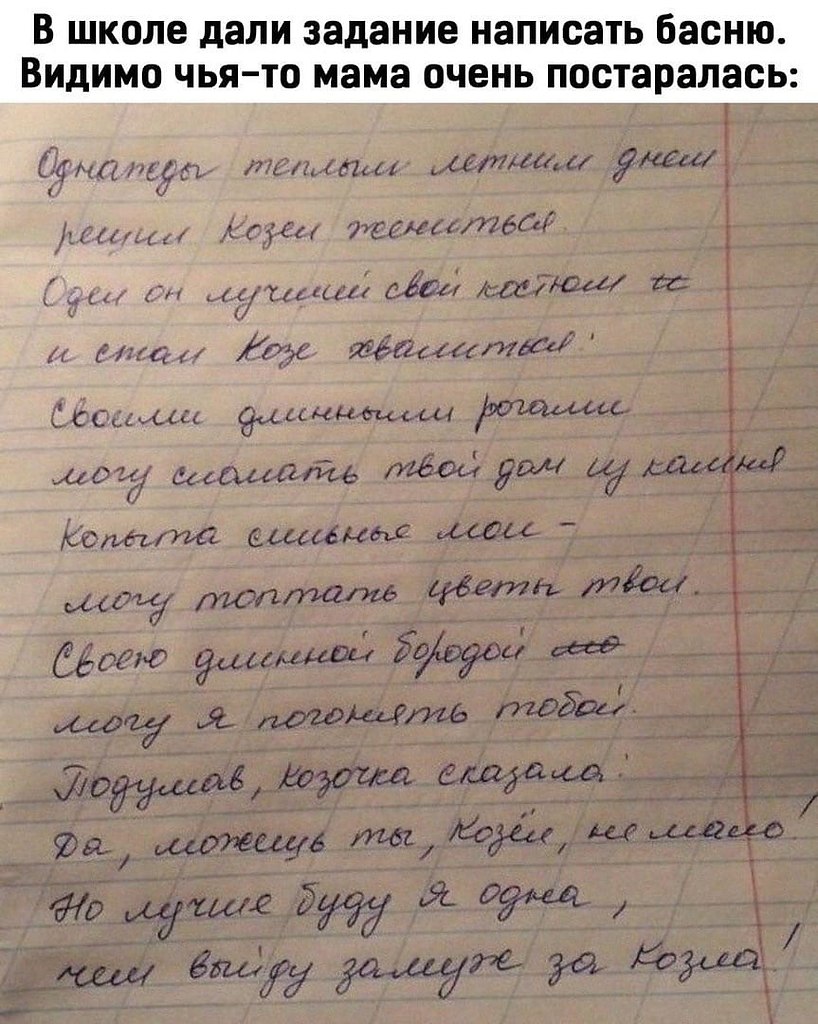 В школе дали задание написать басню.
Видимо чья-то мама очень постаралась:
Однажды теплым летним днем
решил Козел жениться.
Одел он лучший свой костюм и
и стал Козе хвалиться:
Своими длинными рогами
могу сломать твой дом из камня
Копыта сильные мои -
могу топтать цветы твои.
Своею длинной бородой мо
могу я погонять тобой.
Подумав, козочка сказала:
Да, можешь ты, Козёл, не мало!
Но лучше буду я одна,
чем выйду замуж за Козла!